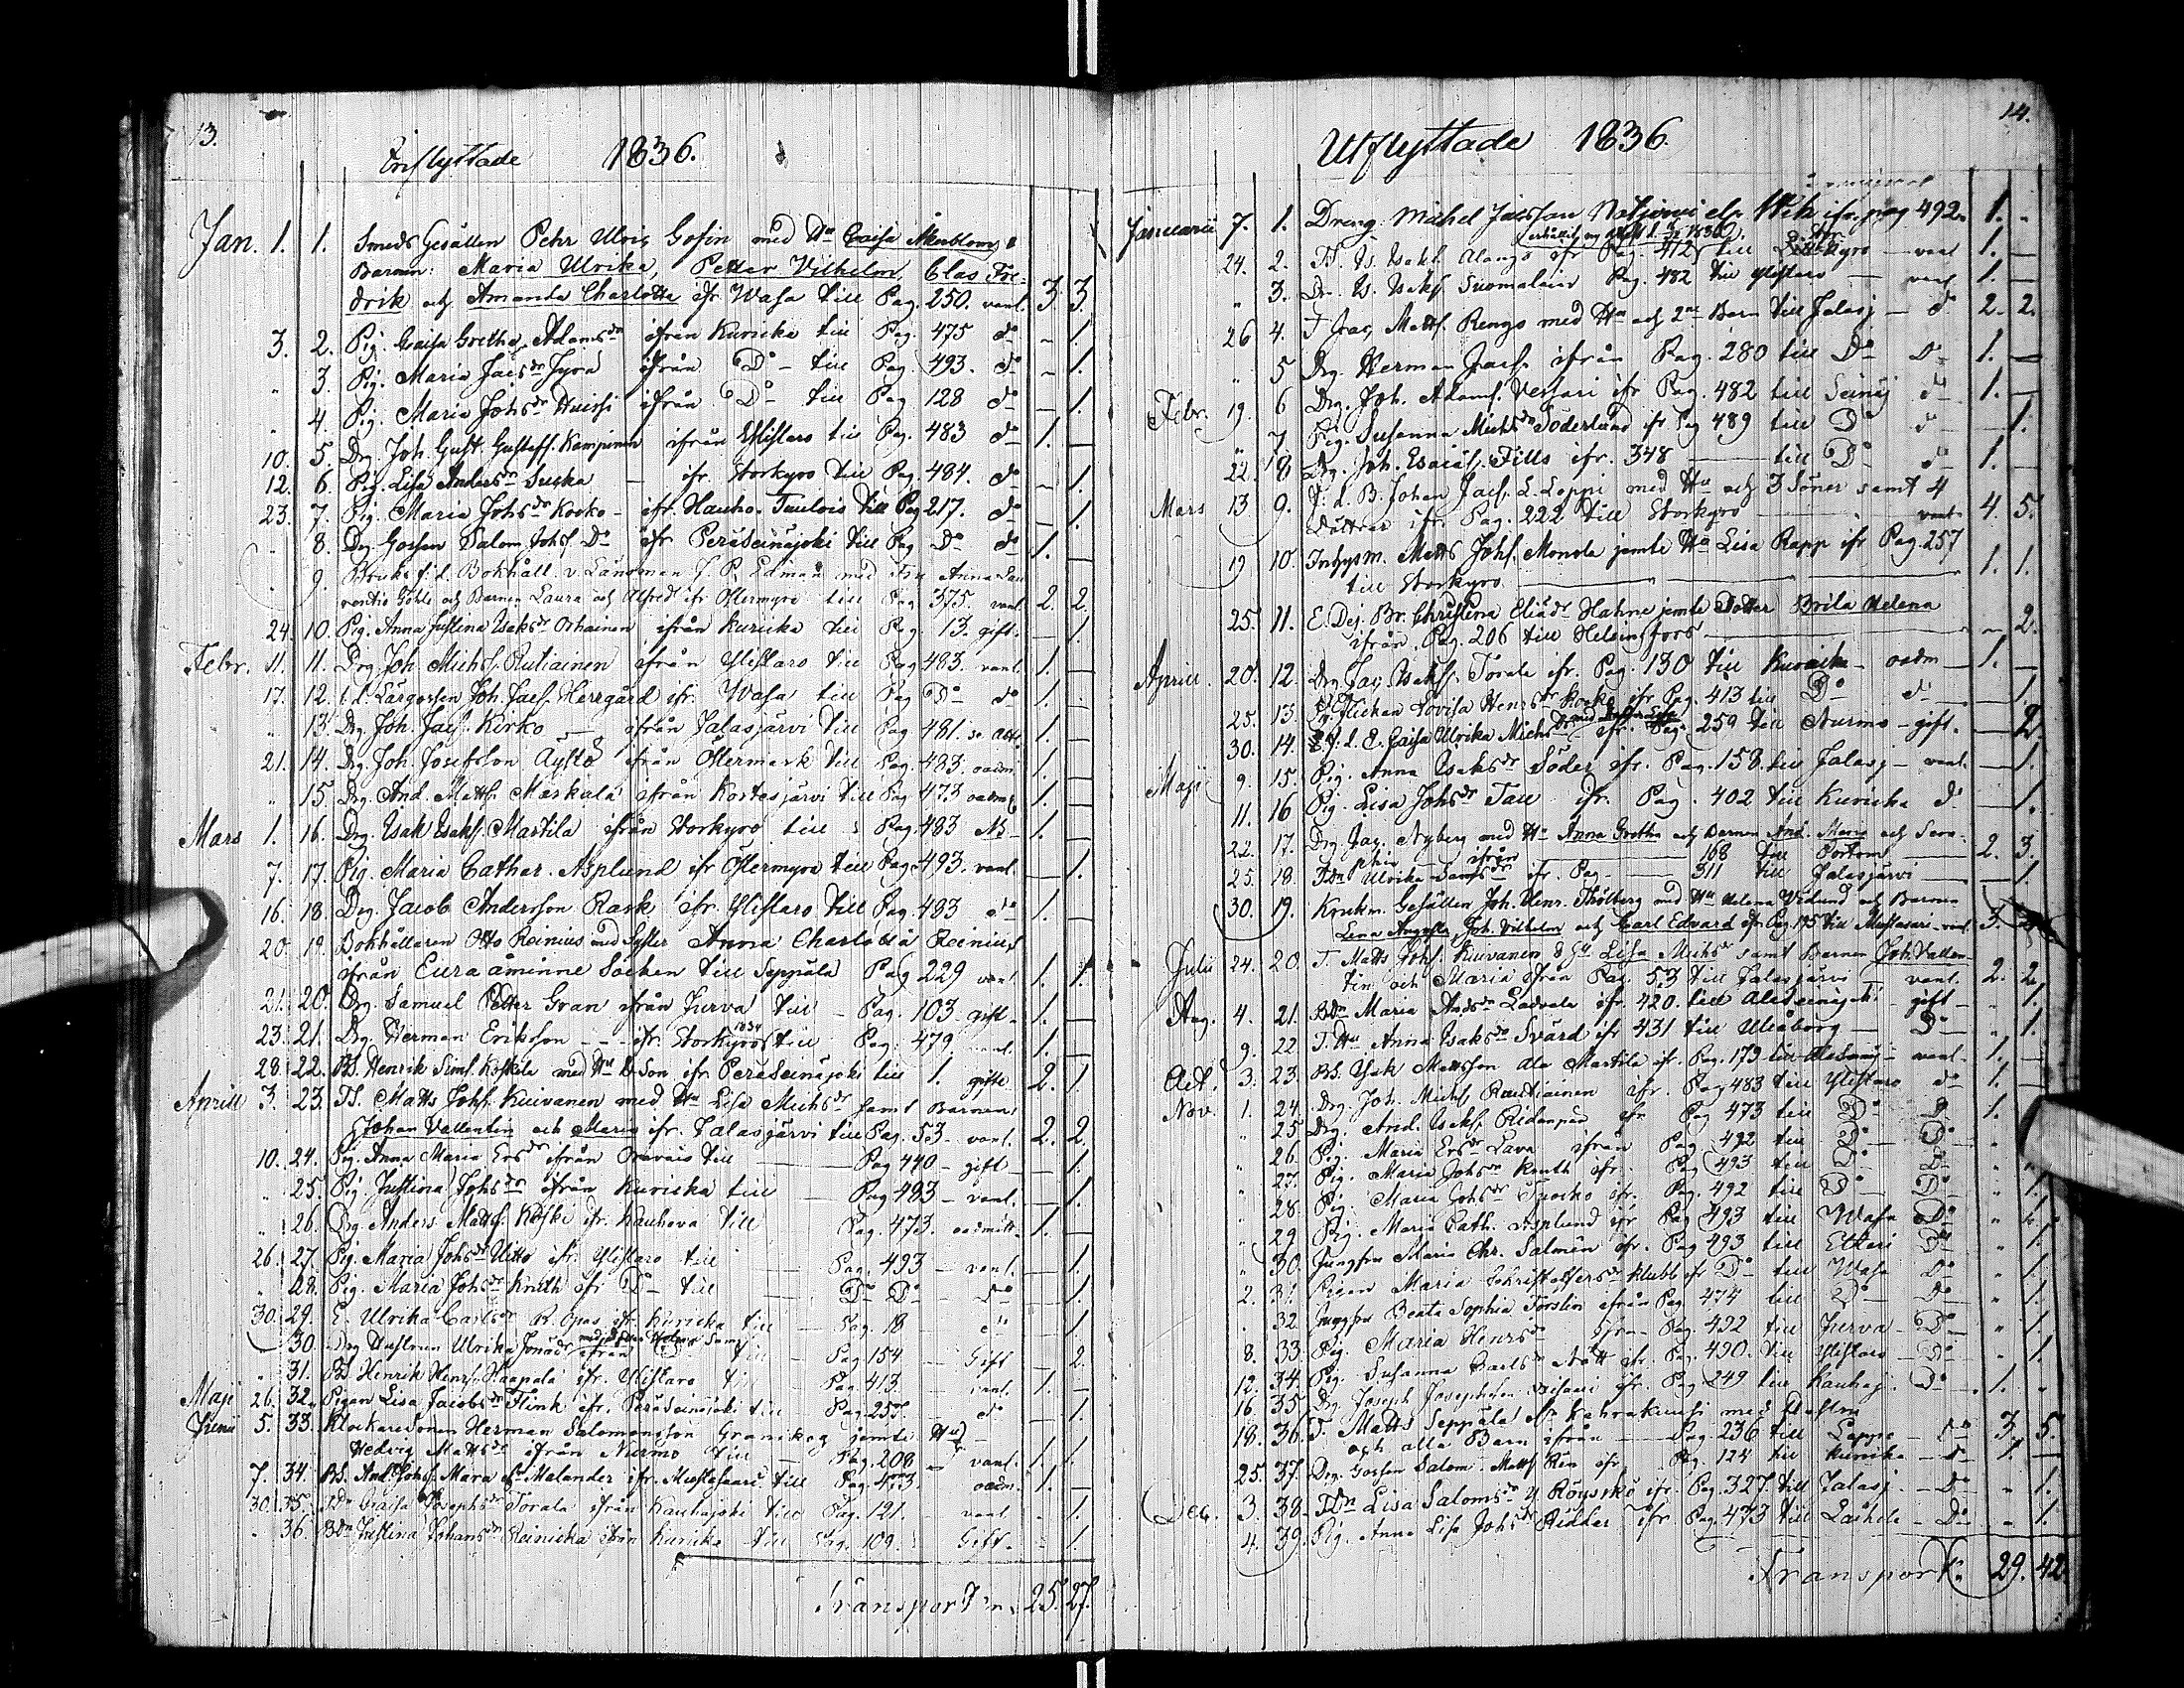 13.
Inflyttade 1836.
Jan. 1. 1. Smeds Gesällen Pehr Ulric Gofin med Hu Caisa Åkerblom,
Barnen: Maria Ulrika, Petter Vilhelm, Clas Fre-
drik och Amanda Charlotta ifr. Wasa till Pag. 250. vanl. 3. 3.
3. 2. Pig. Caisa Gretha Adamsdr ifrån Kuricka till Pag. 475 do - 1.
" 3. Pig. Maria Jacsdr Jyra ifrån Do - till Pag. 493. do - 1.
" 4. Pig. Maria Johsdr ifrån Do till Pag 128 do - 1.
10. 5 Drg. Joh. Gust. Gustafs. Kampinen ifrån Ylistaro till Pag. 483 do 1. -
12. 6. Pig. Lisa Andersdr Suska - ifr. Storkyro till Pag. 484. do - 1.
23. 7. Pig. Maria Johsdr Korko - ifr. Hauho. Tuulois till Pag 217. do - 1.
" 8. Drg Gossen Salom. Johs. Do ifr Peräseinäjoki till Pag Do do 1. -
" 9. Bruks f.d. Bokhåll. v. Länsman J. P. Edman med Fru Anna Lau
rentia Göhle och Barnen Laura och Alfred ifr Östermyra till Pag 375. vanl. 2. 2.
24. 10. Pig. Anna Justina Isaksdr Orhainen ifrån Kuricka till Pag. 13. gift. - 1.
Febr. 11. 11. Drg. Joh. Michs. Rutiainen ifrån Ylistaro till Pag 483. vanl. 1. -
17. 12. f.d. Lärgossen Joh. Jacs. Herrgård ifr. Wasa till Pag Do do 1. -
" 13. Drg. Joh. Jacs. Kirko - ifrån Jalasjärvi till Pag 481. 1. -
21. 14. Drg. Joh. Josefsson Äystö ifrån Östermark till Pag. 483. oadm. 1. -
" 15. Drg. And. Matts. Markula ifrån Kortesjärvi till Pag 473 oadm. 1. -
Mars 1. 16. Drg. Isak Isaks. Martila ifrån Storkyro till Pag. 483 1. -
7. 17. Pig. Maria Cathar. Asplund ifr Östermyra till Pag. 493. vanl. - 1.
16. 18. Drg. Jacob Andersson Rask ifr. Ylistaro till Pag. 483 do 1. -
20. 19. Bokhållaren Otto Reinius med Syster Anna Charlotta Reinius
ifrån Euraåminne Socken till Seppälä Pag 229 vanl. 1. 1.
21. 20. Drg. Samuel Petter Gran ifrån Jurva till - Pag. 103 gift. 1. -
23. 21. Drg Herman Erikson - - - ifr. Storkyro 1834 till Pag. 479 vanl. 1. -
28. 22. BS. Henrik Siml. Koskela med Hu & Son ifr Peräseinäjoki till 1. gifte 2. 1.
Aprill 3. 23. TS. Matts Johs. Kuivanen med Hu Lisa Michsdr samt Barnen
Johan Vallentin och Maria ifr. Jalasjärvi till Pag. 53 - vanl. 2. 2.
10. 24. Pig. Anna Maria Ersdr ifrån Oravais till Pag 440 - gift - 1.
" 25. Pig Justina Johsdr ifrån Kuricka till Pag 483 - vanl. - 1.
" 26. Drg. Anders Matts. Koski ifr. Kauhava till Pag. 473. oadmitt. 1. -
26. 27. Pig. Maria Johsdr Uitto ifr. Ylistaro till Pag. 493 - vanl. - 1.
" 28. Pig. Maria Johsdr Knuth ifr Do till Do Do - Do - 1.
30. 29. E. Ulrika Carlsdr R. Opas ifr. Kuricka till Pag. 18 do 1.
30. Drg Hustrun Ulrika Jonasdr ifrån till Pag 154 Gift - 2.
" 31. BD Henrik Henrs. Haapala ifr. Ylistaro till Pag. 413. vanl. 1. -
Maji 26. 32. Pigan Lisa Jacobsdr Flink ifr. Peräseinäjoki till Pag. 255. do - 1.
Junii 5. 33. Klockaredonen Herman Salomonsson Granskog jemte Hu
Hedvig Mattsdr ifrån Nurmo till Pag. 208 - vanl. 1. 1.
7. 34. BS. And. Johs. Mara el. Malander ifr. Mustasaari till Pag 473. oadm. 1. -
30. 35. Caisa Josephsdr Torala ifrån Kauhajoki till Pag. 121. vanl. - 1.
" 36. Bdr Justina Johansdr Reinicka ifrån Kuricka till Pag. 109. Gift. - 1.
Transport 25. 27.
14.
Utflyttade 1836.
Januarii 7. 1. Dreng. Michel Jacsson ifr. pag 492. 1. -
24. 2. TS. Is. Isaks. Alangs ifr Pag. 412 till Storkyro - vanl 1. -
" 3. Dr. Is. Isaks. Suomalain Pag. 482 till Ylistaro - vanl. 1. -
26 4. T Jac. Matts. Rengo med Hu och 2ne Barn till Jalasj - do 2. 2.
" 5 Drg Herman Jacs. ifrån Pag. 280 till Do Do 1. -
Febr. 19. 6 Drg. Joh. Adams. Versari ifr Pag. 482 till Seinäj do 1. -
" 7 Pig. Susanna Michsdr Söderlund ifr Pag 489 till Do do - 1.
22. 8. Drg. Joh. Esaias. Fills ifr. 348 till Do do 1. -
Mars 13 9. f. d. B. Johan Jacs. L. Loppi med Hu och 3 Söner samt 4
Döttrar ifr. Pag. 222 till Storkyro vanl. 4. 5.
19 10. Inhysm. Matts Johs. Monola jemte Hu Lisa Rapp ifr Pag. 257
till Storkyro 1. 1.
25. 11. E. Dej. Br. Christina Eliasdr Hahne jemte Dotter Brita Helena
ifrån Pag. 206 till Helsingfors - 2.
Aprill. 20. 12. Drg Jac. Isaks. Torala ifr. Pag. 130 till Kuricka - oadm 1. -
25. 13. Flickan Lovisa Henrsdr Korko ifr Pag. 413 till Do do - 1.
30. 14. f. d. E. Caisa Ulrika Michsdr ifr. Pag. 259 till Nurmo - gift. - 2.
Maji 9. 15. Pig. Anna Isaksdr Söder ifr. Pag. 158. till Jalasj - vanl. - 1.
11. 16 Pig. Lisa Johsdr Tall ifr. Pag. 402 till Kuricka do - 1.
22. 17. Drg. Jac. Nyberg med Hu Anna Gretha och Barnen And. Maria och Sera-
phia ifrån 168 till Portom 2. 3.
25. 18. Tdr Ulrika ifr. Pag 311 till Jalasjärvi - 1.
30. 19. Krukm. Gesällen Joh. Henr. Thölberg med Hu Helena Vidlund och Barnen
Lena Augusta, Joh. Vilhelm och Carl Edvard ifr Pag. 195 till Mustasari - vanl. 3.
Julii 24. 20. T. Matts Johs. Kuivanen & Hu Lisa Michsdr samt Barnen Joh. Vallen-
tin och Maria ifrån Pag. 53 till Jalasjärvi vanl. 2. 2.
Aug. 4. 21. Bdr Maria Andsdr Ladvala ifr. 420. till Alaseinäjoki gift - 1.
9. 22 T. Hu Anna Isaksdr Svärd ifr 431 till Uleåborg Do " 1.
Oct. 3. 23. BS. Isak Mattsson Ala Martila ifr. Pag. 179 till - vanl. 1. -
Nov. 1. 24. Drg. Joh. Michs. Rautiainen ifr. Pag 483 till Ylistaro do 1. -
" 25 Drg. And. Isaks. ifr Pag 473 till Do Do 1.
" 26. Pig. Maria Ersdr Lava ifrån Pag 492 till Do Do "
" 27. Pig. Maria Johsdr Knuth ifr. Pag 493 till Do Do "
" 28. Pig. Maria Johsdr ifr. Pag. 492 till Do Do " 1.
" 29. Pig. Maria Cath. Asplund ifr Pag 493 till Wasa Do " 1.
" 30. Jungfru Maria Chr. Salmén ifr. Pag 493 till Etseri Do " 1.
2. 31. Pigan Maria Christoffersdr Klubb ifr Do till Wasa Do " 1.
" 32. Jungfru Beata Sophia Forslin ifrån Pag 474 till Do Do " 1.
8. 33. Pig. Maria Henrsdr ifrån Pag. 492 till Jurva Do " 1.
12. 34. Pig. Susanna Carlsdr ifr. Pag. 490. till Ylistaro Do " 1.
16. 35. Drg. Joseph Josephsson ifr. Pag 249 till Kauhaj. Do 1. -
18. 36. T. Matts Seppälä med Hustru
och alla Barn ifrån Pag. 236 till Lappo do 3. 5.
25. 37. Drg. Gossen Salom. Matts. ifr Pag. 124 till Kuricka do 1. -
Dec. 3. 38. Tdr Lisa Salomsdr Y. Röyskö ifr. Pag. 327. till Jalasj. - Do " 1.
4. 39. Pig. Anna Lisa Johsdr Ridder ifr Pag. 473 till Laihela - Do " 1.
Transport 29. 42.